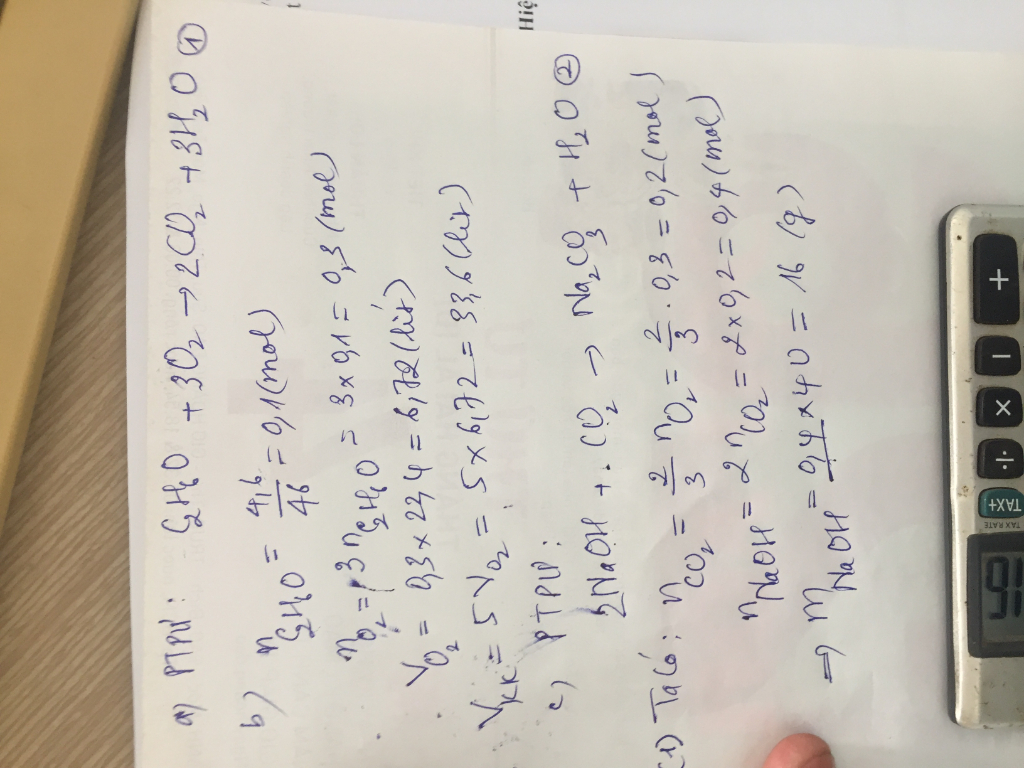 a) PTPƯ: C₂H₆O + 3O₂ → 2CO₂ + 3H₂O ①
b) n C₂H₆O = 4,6/46 = 0,1 (mol)
n O₂ = 3 n C₂H₆O = 3 x 0,1 = 0,3 (mol)
V O₂ = 0,3 x 22,4 = 6,72 (lít)
Vkk = 5 V O₂ = 5 x 6,72 = 33,6 (lít)
c) PTPƯ:
2NaOH + CO₂ → Na₂CO₃ + H₂O ②
(1) Ta có: n CO₂ = 2/3 n O₂ = 2/3 . 0,3 = 0,2 (mol)
n NaOH = 2 n CO₂ = 2 x 0,2 = 0,4 (mol)
=> m NaOH = 0,4 x 40 = 16 (g)
Hiệ
+
−
×
÷
TAX+
TAX RATE
16